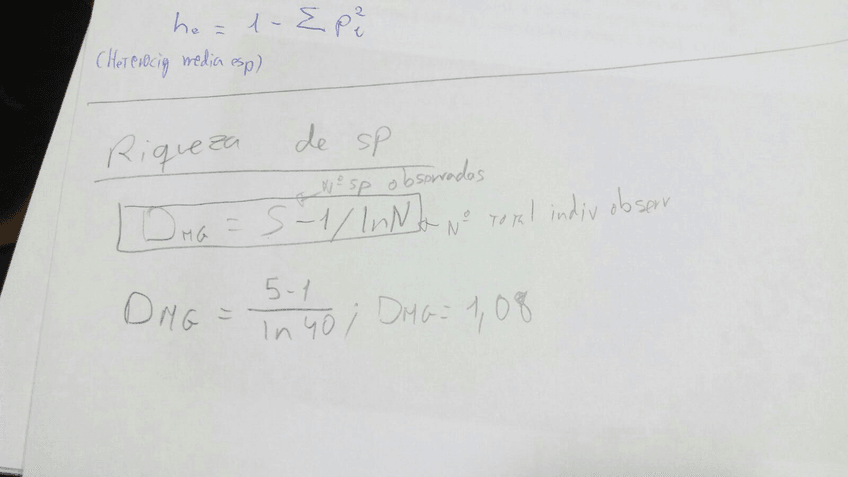 he = 1 - Σ pi²
(Heterocig media esp)
Riqueza de sp
Nº sp observados
DMG = S-1/lnN
Nº total indiv observ
DMG = 5-1/ln 40 ; DMG = 1,08